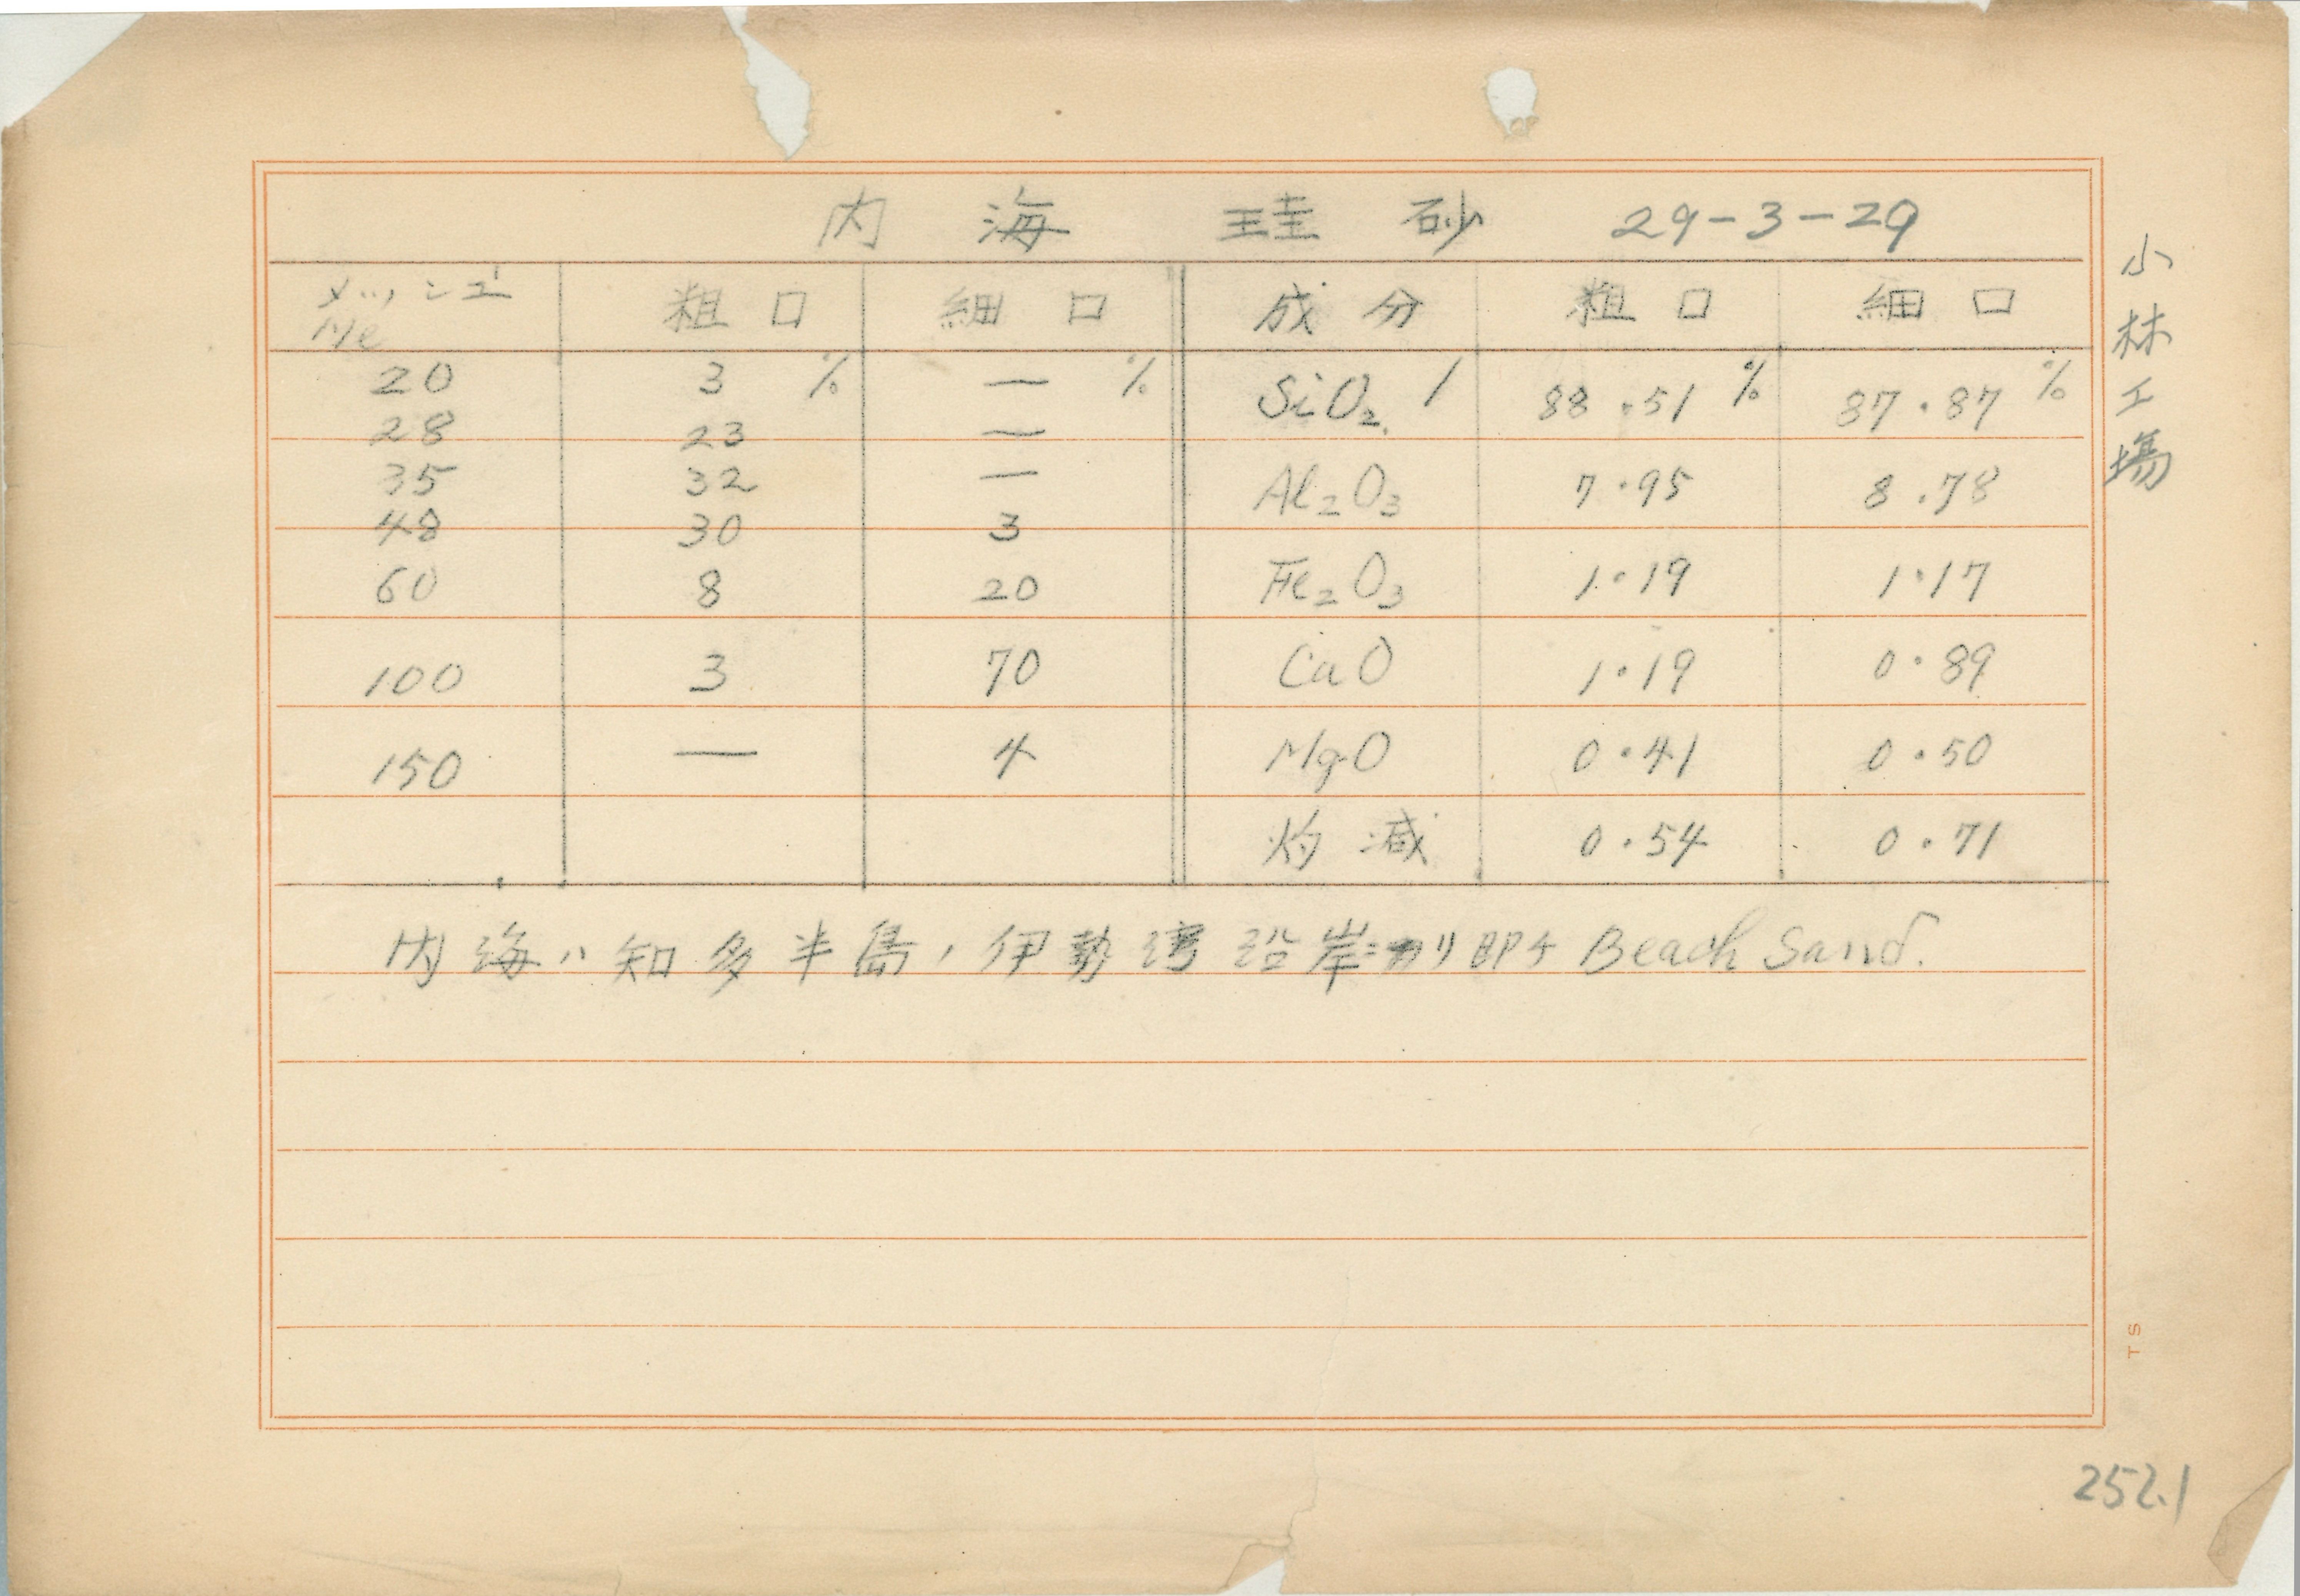 内海 珪砂 29-3-29
メッシュ 粗口 細口 成分 粗口 細口
Me
20 3 % — % SiO₂ 88.51 % 87.87 %
28 23 —
35 32 — Al₂O₃ 7.95 8.78
48 30 3
60 8 20 Fe₂O₃ 1.19 1.17
100 3 70 CaO 1.19 0.89
150 — 4 MgO 0.41 0.50
灼減 0.54 0.71
内海ハ知多半島、伊勢湾沿岸ニアリ即チ Beach Sand.
小林工場
TS
252.1